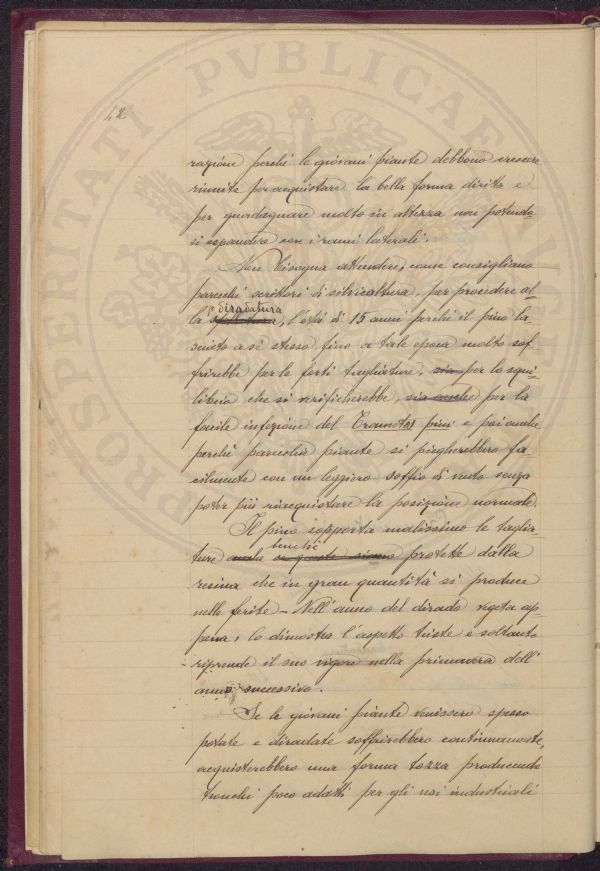 PROSPERITATI PVBLICAE
42
razione perché le giovani piante debbono crescere
riunite per acquistare la bella forma diritta e
per guadagnare molto in altezza non potendo-
si espandere con i rami laterali.
Non bisogna attendere, come consigliano
parecchi scrittori di silvicultura, per procedere al-
la diradatura, l'età di 15 anni perché il pino la-
sciato a sé stesso fino a tale epoca molto sof-
frirebbe per le forti tagliature, sia per lo squi-
librio che si verificherebbe, sia anche per la
facile infezione del Trametes pini e poi anche
perché parecchie piante si piegherebbero fa-
cilmente con un leggiero soffio di vento senza
poter più riacquistare la posizione normale.
Il pino sopporta malissimo le taglia-
benché
ture anche se queste siano protette dalla
resina che in gran quantità si produce
nelle ferite - Nell'anno del dirado vegeta ap-
pena, lo dimostra l'aspetto triste e soltanto
riprende il suo vigore nella primavera dell'
anno successivo.
Se le giovani piante venissero spesso
potate e diradate soffrirebbero continuamente,
acquisterebbero una forma tozza producendo
tronchi poco adatti per gli usi industriali